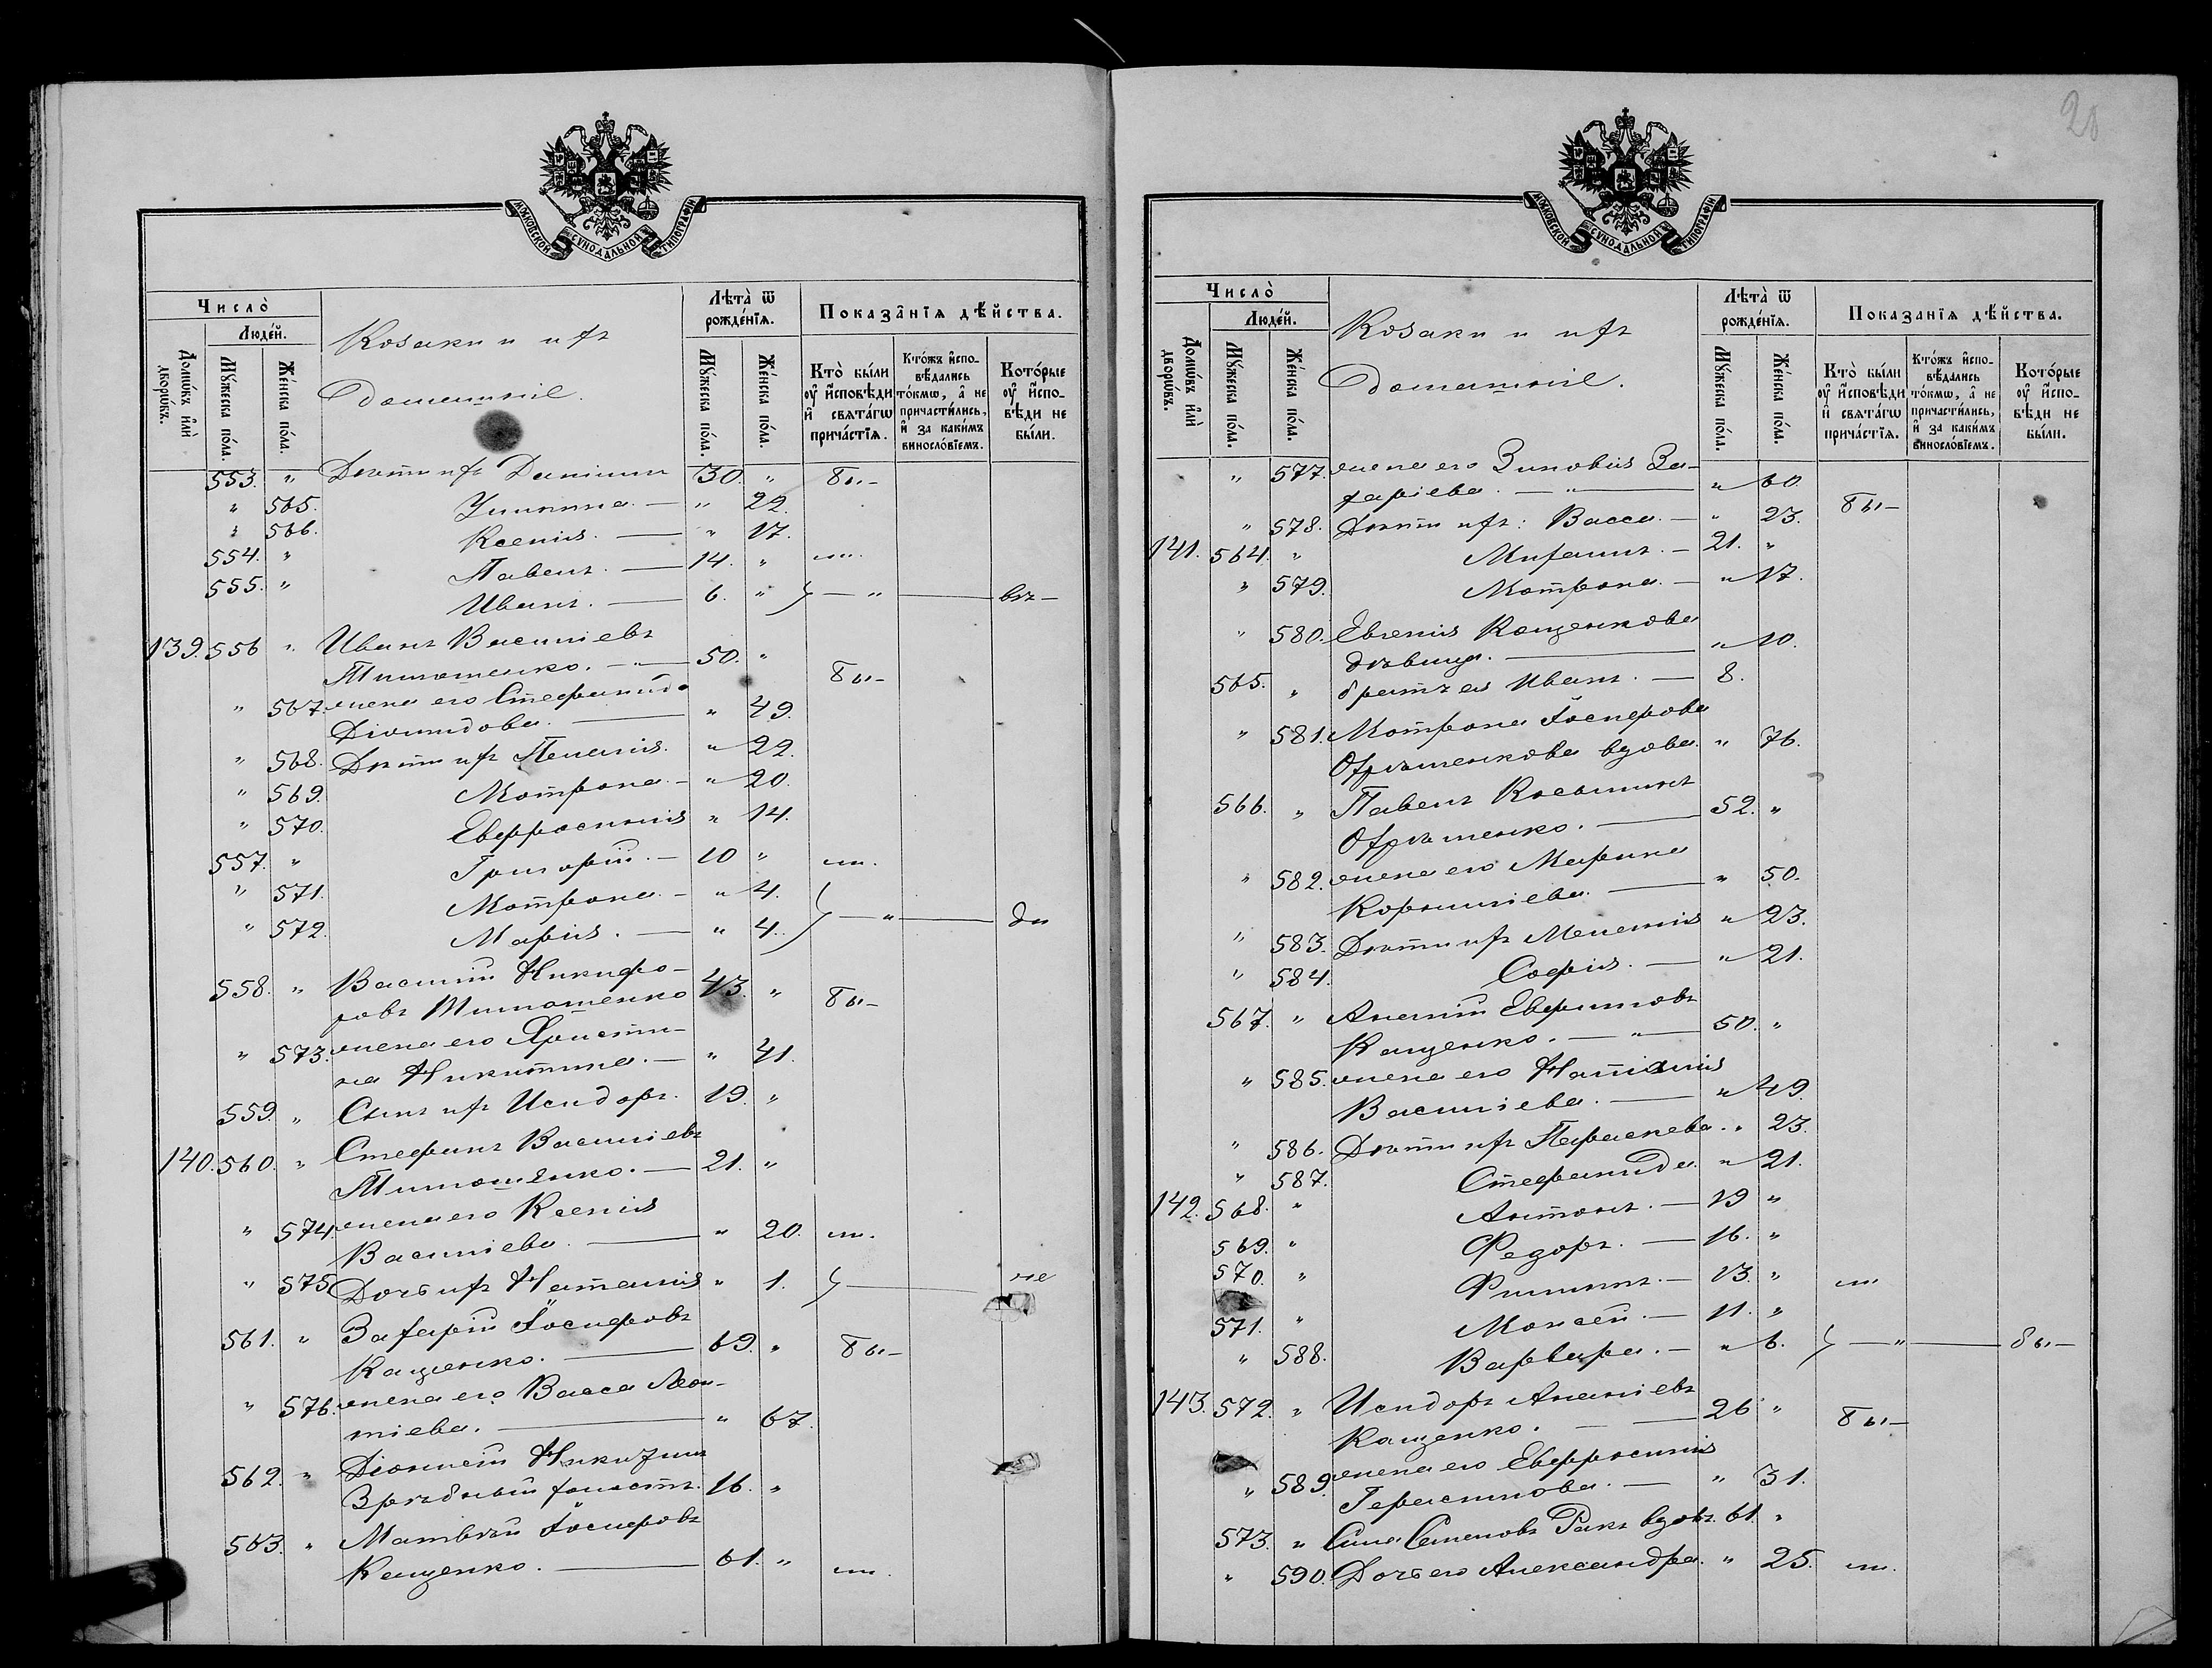 МОСКОВСКОЙ СѴНОДАЛЬНОЙ ТИПОГРАФІИ
Число̀
Людéй.
Домѡ́въ и҆лѝ дворѡ́въ.
Мꙋ́жеска по́ла.
Же́нска по́ла.
Козаки и ихъ
Домашніе.
Лѣта̀ ѿ рожде́нїѧ.
Мꙋ́жеска по́ла.
Же́нска по́ла.
Показа̂нїѧ дѣ́йства.
Кто̀ бы́ли оу҆ и҆сповѣди и҆ свѧта́гѡ прича́стїѧ.
Кто́жъ и҆спо- вѣ́дались то́кмѡ, а҆ не причасти́лись, и҆ за каки́мъ винословїемъ.
Кото́рые оу҆ и҆спо- вѣди не бы́ли.
553. " Дѣти ихъ Даніилъ 30. " бы-
" 565. Улиана. — " 22.
" 566. Ксенія. — " 17.
554. " Павелъ. — 14. " ли.
555. " Иванъ. — 6. " — " — въ-
139. 556 " Иванъ Васильевъ
Тимошенко. — " — 50. " бы-
" 567. жена его Стефанида
Діомидова. — " 49.
" 568. Дѣти ихъ Пелагія. " 22.
" 569. Мотрона. — " 20.
" 570. Евфросинія " 14.
557. " Григорій. — 10 " ли.
" 571. Мотрона. — " 4.
" 572. Марія. — " 4. — " — ли
558. " Василій Никифо-
ровъ Тимошенко 43. " бы-
" 573. жена его Христи-
на Никитина. — " 41.
559. " Сынъ ихъ Исидоръ. 19. "
140. 560. " Стефанъ Васильевъ
Тимошенко. — 21. "
" 574. жена его Ксенія
Васильева. — " 20. ли.
" 575. Дочь ихъ Наталія " 1. — не
561. " Захарій Іосифовъ
Кащенко. — 69. " бы-
" 576. жена его Васса Леон-
тіева. — " 67.
562. " Діонисій
холостъ. 16. "
563. " Матвѣй Іосифовъ
Кащенко. — 61. " ли.
20
МОСКОВСКОЙ СѴНОДАЛЬНОЙ ТИПОГРАФІИ
Число̀
Людéй.
Домѡ́въ и҆лѝ дворѡ́въ.
Мꙋ́жеска по́ла.
Же́нска по́ла.
Козаки и ихъ
Домашніе.
Лѣта̀ ѿ рожде́нїѧ.
Мꙋ́жеска по́ла.
Же́нска по́ла.
Показа̂нїѧ дѣ́йства.
Кто̀ бы́ли оу҆ и҆сповѣди и҆ свѧта́гѡ прича́стїѧ.
Кто́жъ и҆спо- вѣ́дались то́кмѡ, а҆ не причасти́лись, и҆ за каки́мъ винословїемъ.
Кото́рые оу҆ и҆спо- вѣди не бы́ли.
" 577. жена его Зиновія За-
харіева. — " — " 60.
" 578. Дѣти ихъ: Васса. — " 23. бы-
141. 564. " Михаилъ. — 21. "
" 579. Мотрона. — " 17.
" 580. Евгенія Кащенкова
дѣвица. — " 10.
565. " братъ ея Иванъ. — 8.
" 581. Мотрона Іосифова
Охрѣменкова вдова. " 76.
566. " Павелъ Косьминъ
Охрѣменко. — 52. "
" 582. жена его Марина
Корниліева. — " 50.
" 583. Дѣти ихъ Меланія " 23.
" 584. Софія. — " 21.
567. " Ананій Ефримовъ
Кащенко. — " — 50. "
" 585. жена его Наталія
Васильева. — " 49.
" 586. Дѣти ихъ Параскева. " 23.
" 587. Стефанида. " 21.
142. 568. " Антонъ. — 19 "
569. " Федоръ. — 16. "
570. " Филиппъ. — 13. " ли
571. " Моисей. — 11. "
" 588. Варвара. — " 6. — " — бы-
143. 572. " Исидоръ Ананіевъ
Кащенко. — 26 " бы-
" 589. жена его Евфросинія
Герасимова. — " 31.
573. " Сила Семеновъ Ракъ вдовъ. 61. "
" 590. Дочь его Александра. " 25. ли.